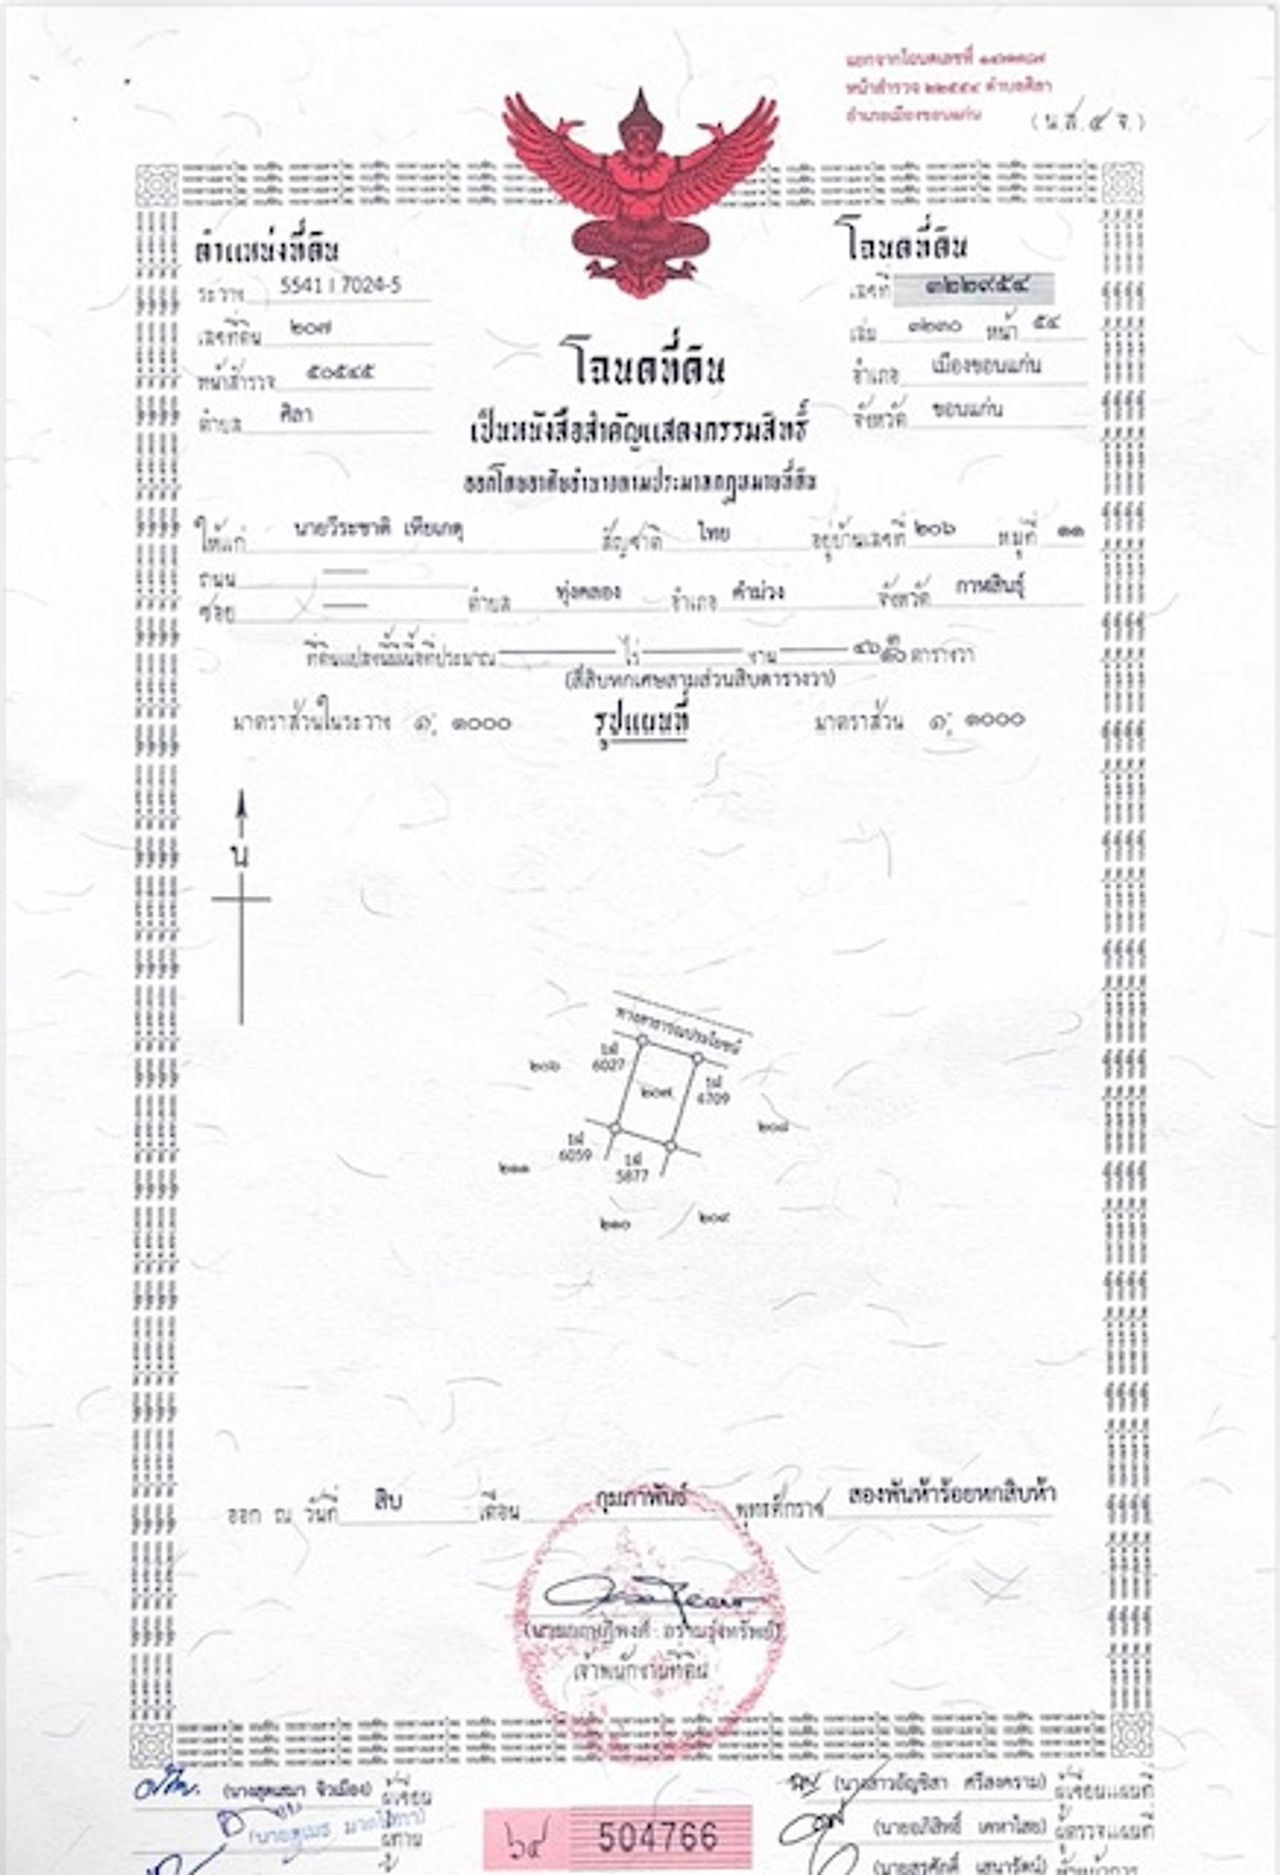 แยกจากโฉนดเลขที่
หน้าสำรวจ ๒๒๕๕๔ ตำบลศิลา
อำเภอเมืองขอนแก่น
(น.ส. ๔ จ.)
ตำแหน่งที่ดิน
โฉนดที่ดิน
ระวาง 5541 I 7024-5
เลขที่ ๓๒๒๙๕๔
เลขที่ดิน ๒๐๗
เล่ม ๓๒๓๐ หน้า ๕๔
หน้าสำรวจ ๕๐๕๔๕
อำเภอ เมืองขอนแก่น
ตำบล ศิลา
จังหวัด ขอนแก่น
โฉนดที่ดิน
เป็นหนังสือสำคัญแสดงกรรมสิทธิ์
ออกโดยอาศัยอำนาจตามประมวลกฎหมายที่ดิน
ให้แก่ นายวีระชาติ เทียเกตุ สัญชาติ ไทย อยู่บ้านเลขที่ ๒๐๖ หมู่ที่ ๑๑
ถนน
ซอย ตำบล ทุ่งคลอง อำเภอ คำม่วง จังหวัด กาฬสินธุ์
ที่ดินแปลงนี้มีเนื้อที่ประมาณ ไร่ งาน ๔๖ ๓/๑๐ ตารางวา
(สี่สิบหกเศษสามส่วนสิบตารางวา)
มาตราส่วนในระวาง ๑: ๑๐๐๐ รูปแผนที่ มาตราส่วน ๑: ๑๐๐๐
น
ทางสาธารณประโยชน์
๒๐๖
1ฝ
6027
๒๐๗
1ฝ
4709
๒๐๘
1ฝ
6059
1ฝ
5877
๒๑๑
๒๑๐
๒๐๙
ออก ณ วันที่ สิบ เดือน กุมภาพันธ์ พุทธศักราช สองพันห้าร้อยหกสิบห้า
เจ้าพนักงานที่ดิน
ผู้เขียน
ผู้เขียนแผนที่
ผู้ทาน
(นายอภิสิทธิ์ เคหาไสย) ผู้ตรวจแผนที่
๖๔ 504766